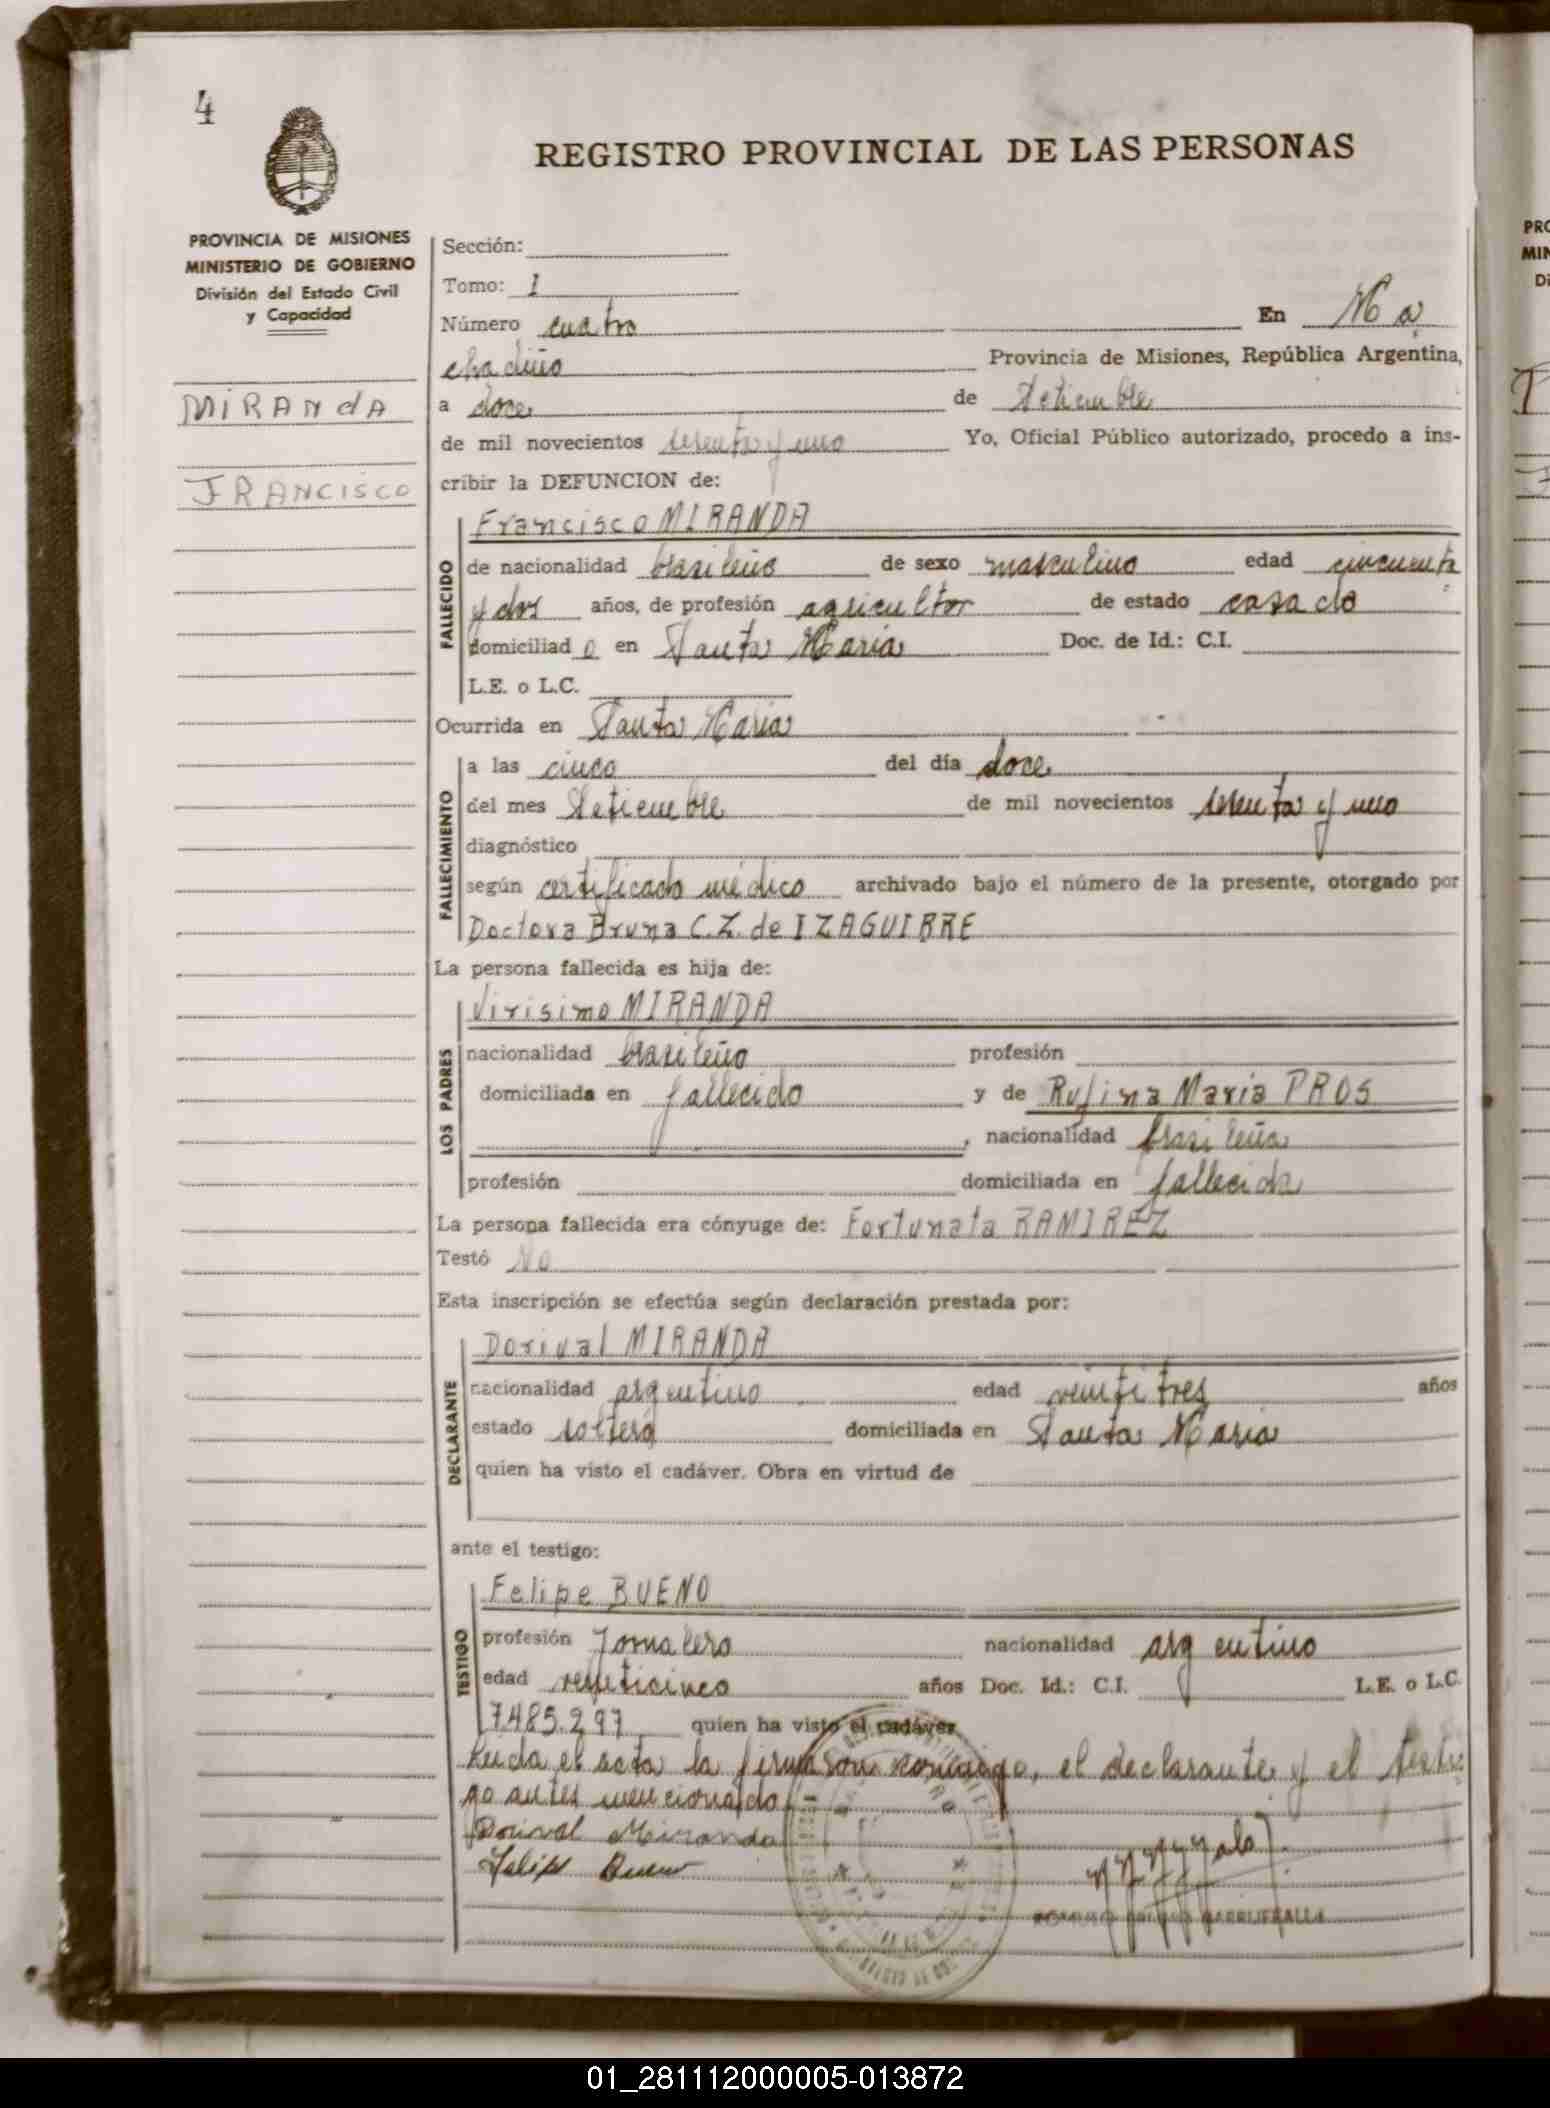 4
REGISTRO PROVINCIAL DE LAS PERSONAS
PROVINCIA DE MISIONES
MINISTERIO DE GOBIERNO
División del Estado Civil
y Capacidad
MIRANdA
FRANCISCO
Sección:
Tomo: 1
Número cuatro En Ma
chadiño Provincia de Misiones, República Argentina,
a doce de Setiembre
de mil novecientos sesenta y uno Yo, Oficial Público autorizado, procedo a ins-
cribir la DEFUNCION de:
FALLECIDO
Francisco MIRANDA
de nacionalidad brasileño de sexo masculino edad cincuenta
y dos años, de profesión agricultor de estado casado
domiciliado en Santa María Doc. de Id.: C.I.
L.E. o L.C.
Ocurrida en Santa María
FALLECIMIENTO
a las cinco del día doce
del mes Setiembre de mil novecientos sesenta y uno
diagnóstico
según certificado médico archivado bajo el número de la presente, otorgado por
Doctora Bruna C.Z. de IZAGUIRRE
La persona fallecida es hija de:
LOS PADRES
Virisimo MIRANDA
nacionalidad brasileño profesión
domiciliada en fallecido y de Rufina María PROS
, nacionalidad brasileña
profesión domiciliada en fallecida
La persona fallecida era cónyuge de: Fortunata RAMIREZ
Testó No
Esta inscripción se efectúa según declaración prestada por:
DECLARANTE
Dorival MIRANDA
nacionalidad argentino edad veintitres años
estado soltero domiciliada en Santa María
quien ha visto el cadáver. Obra en virtud de
ante el testigo:
TESTIGO
Felipe BUENO
profesión Jornalero nacionalidad argentino
edad veinticinco años Doc. Id.: C.I. L.E. o L.C.
7.485.297 quien ha visto el cadáver
Leída el acta la firmaron conmigo, el declarante y el testi
go antes mencionado.-
Dorival Miranda
Felipe Bueno
PRO
MIN
Di
01_281112000005-013872